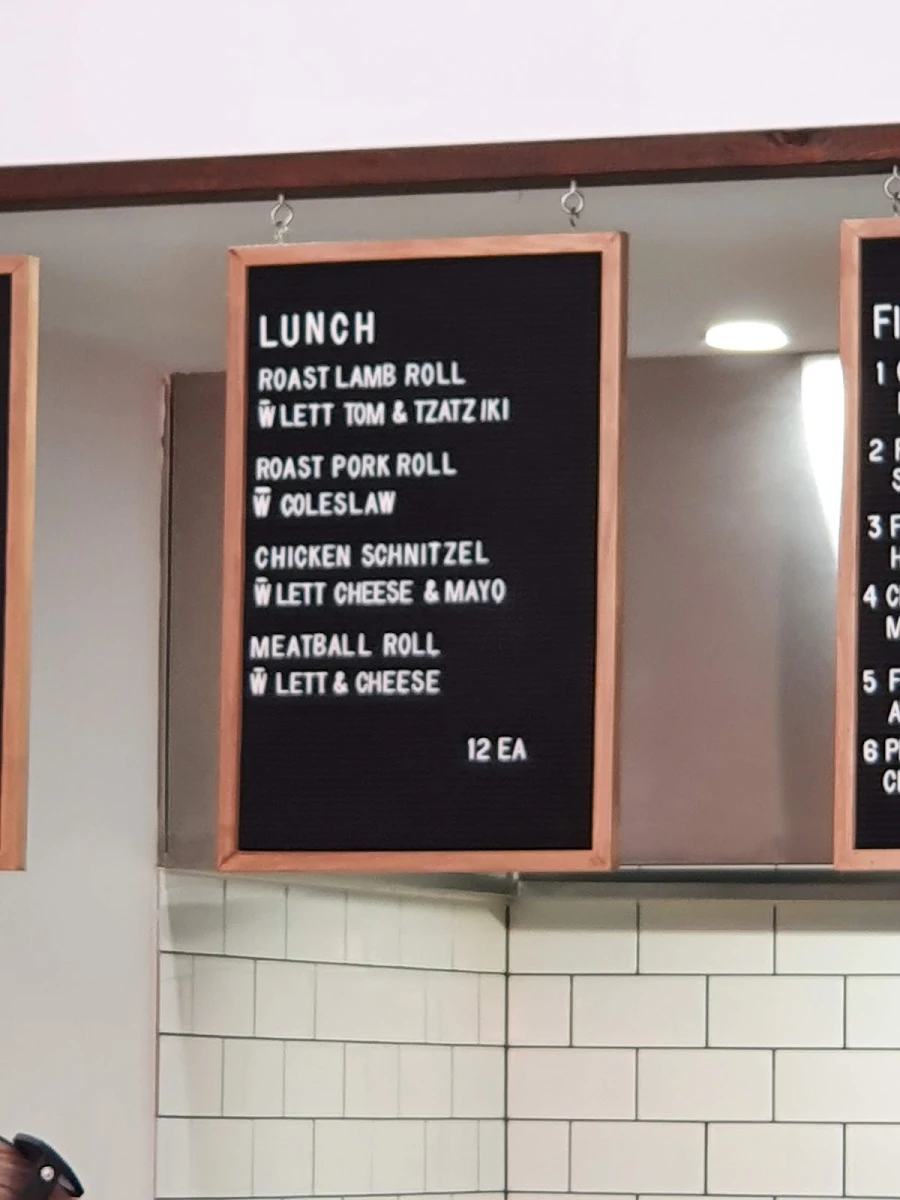 LUNCH
ROAST LAMB ROLL
W̅ LETT TOM & TZATZIKI
ROAST PORK ROLL
W̅ COLESLAW
CHICKEN SCHNITZEL
W̅ LETT CHEESE & MAYO
MEATBALL ROLL
W̅ LETT & CHEESE
12 EA
1
2
3
4
5
6